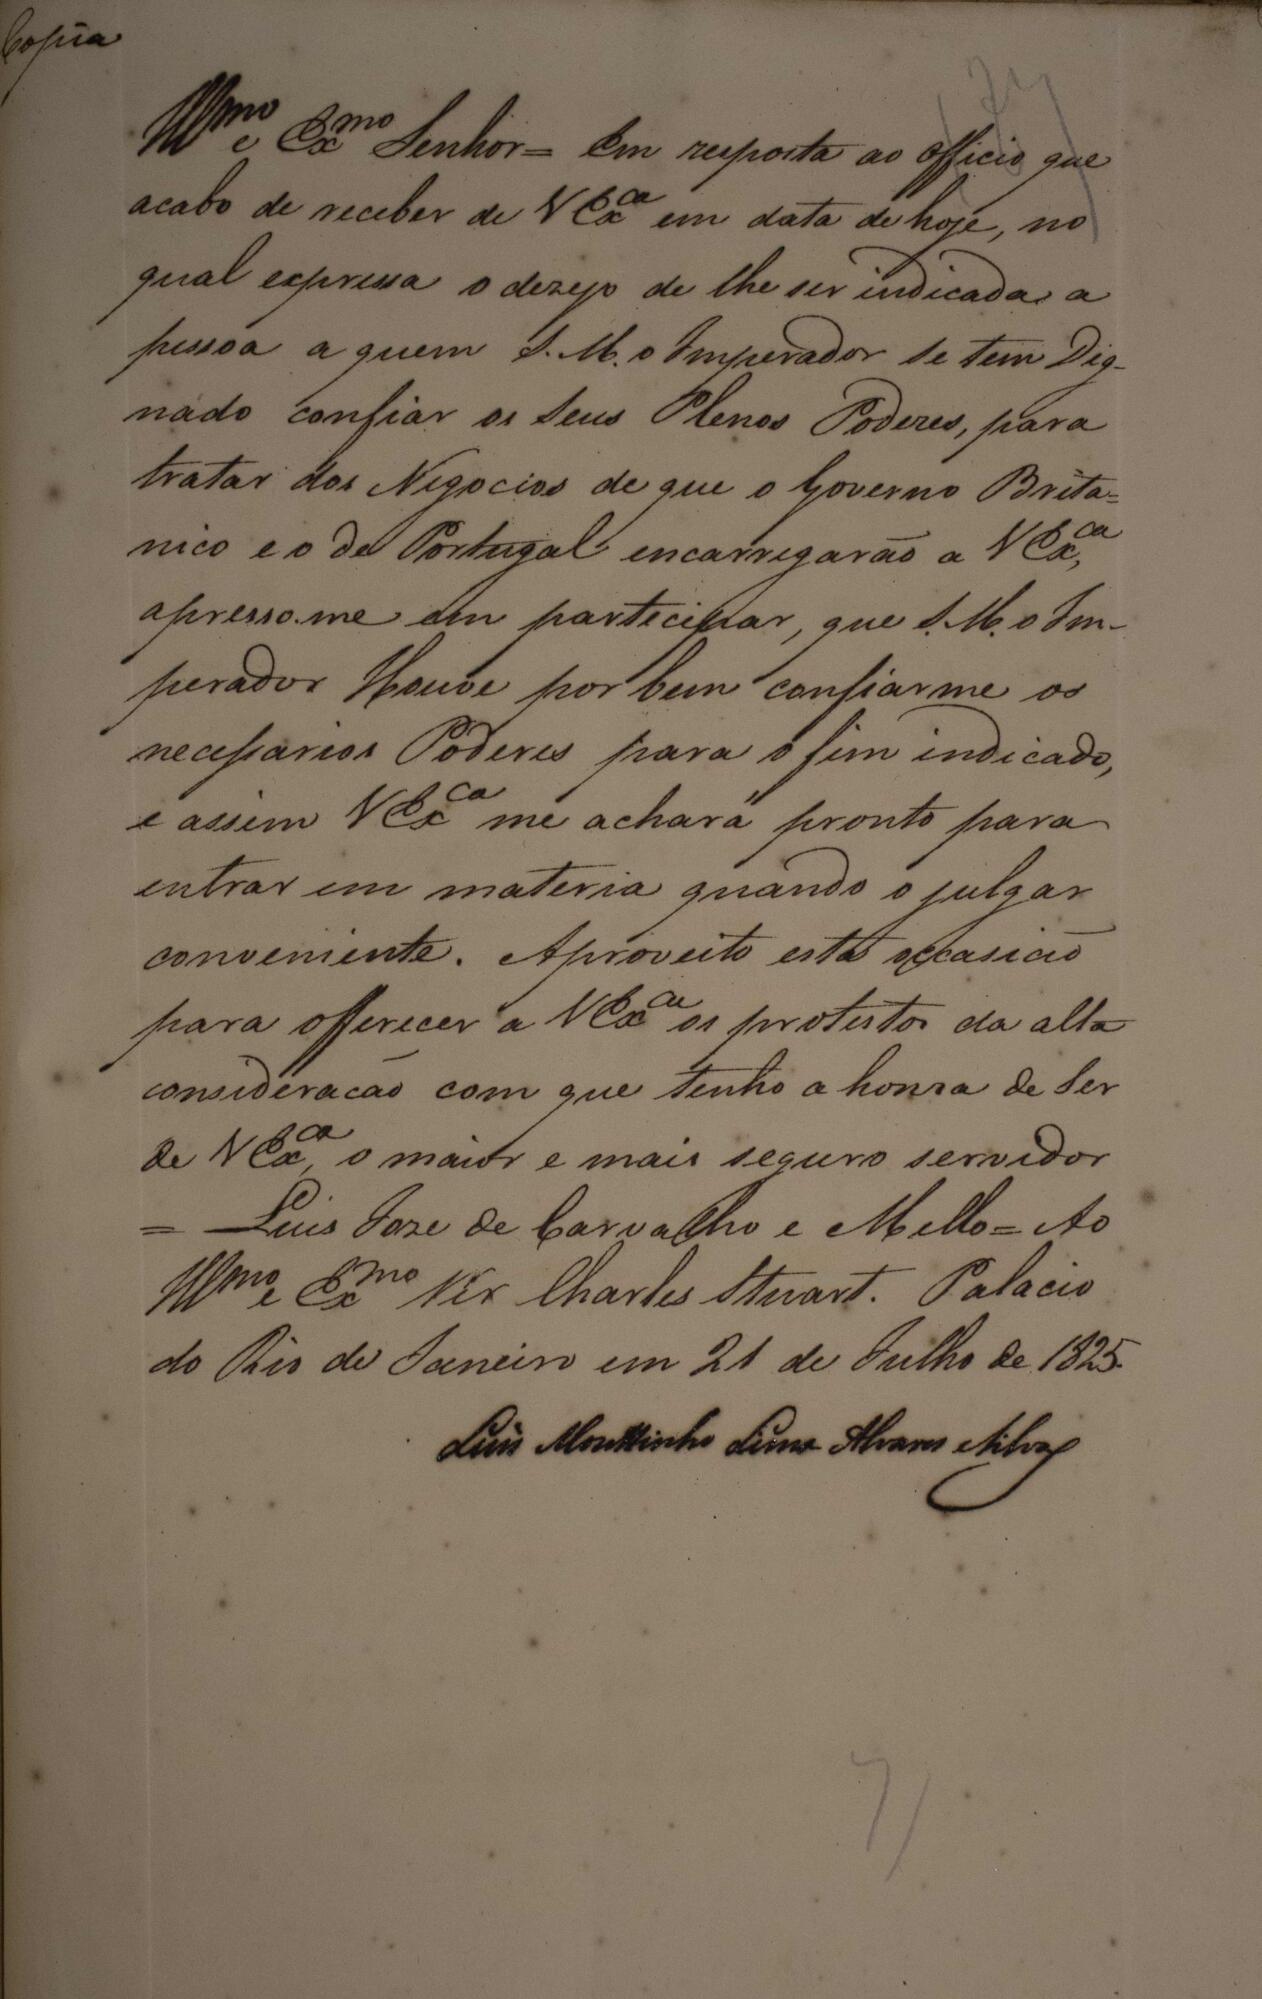 Copia
Illmo e Exmo Senhor = Em resposta ao officio que
acabo de receber de V Exca em data de hoje, no
qual expressa o dezejo de lhe ser indicada a
pessoa a quem S. M. o Imperador se tem Dig-
nado confiar os Seus Plenos Poderes, para
tratar dos Negocios de que o Governo Brita=
nico e o de Portugal encarregarão a V Exca,
apresso-me em partecipar, que S. M. o Im-
perador Houve por bem confiarme os
necessarios Poderes para o fim indicado,
e assim V Exca me achará pronto para
entrar em materia quando o julgar
conveniente. Aproveito esta occasião
para offerecer a V Exca os protestos da alta
consideracão com que tenho a honra de Ser
de V Exca, o maior e mais seguro servidor
= Luis Joze de Carvalho e Mello = Ao
Illmo e Exmo Charles Stuart. Palacio
do Rio de Janeiro em 21 de Julho de 1825.
Luis Mouttinho Lima Alvares eSilva